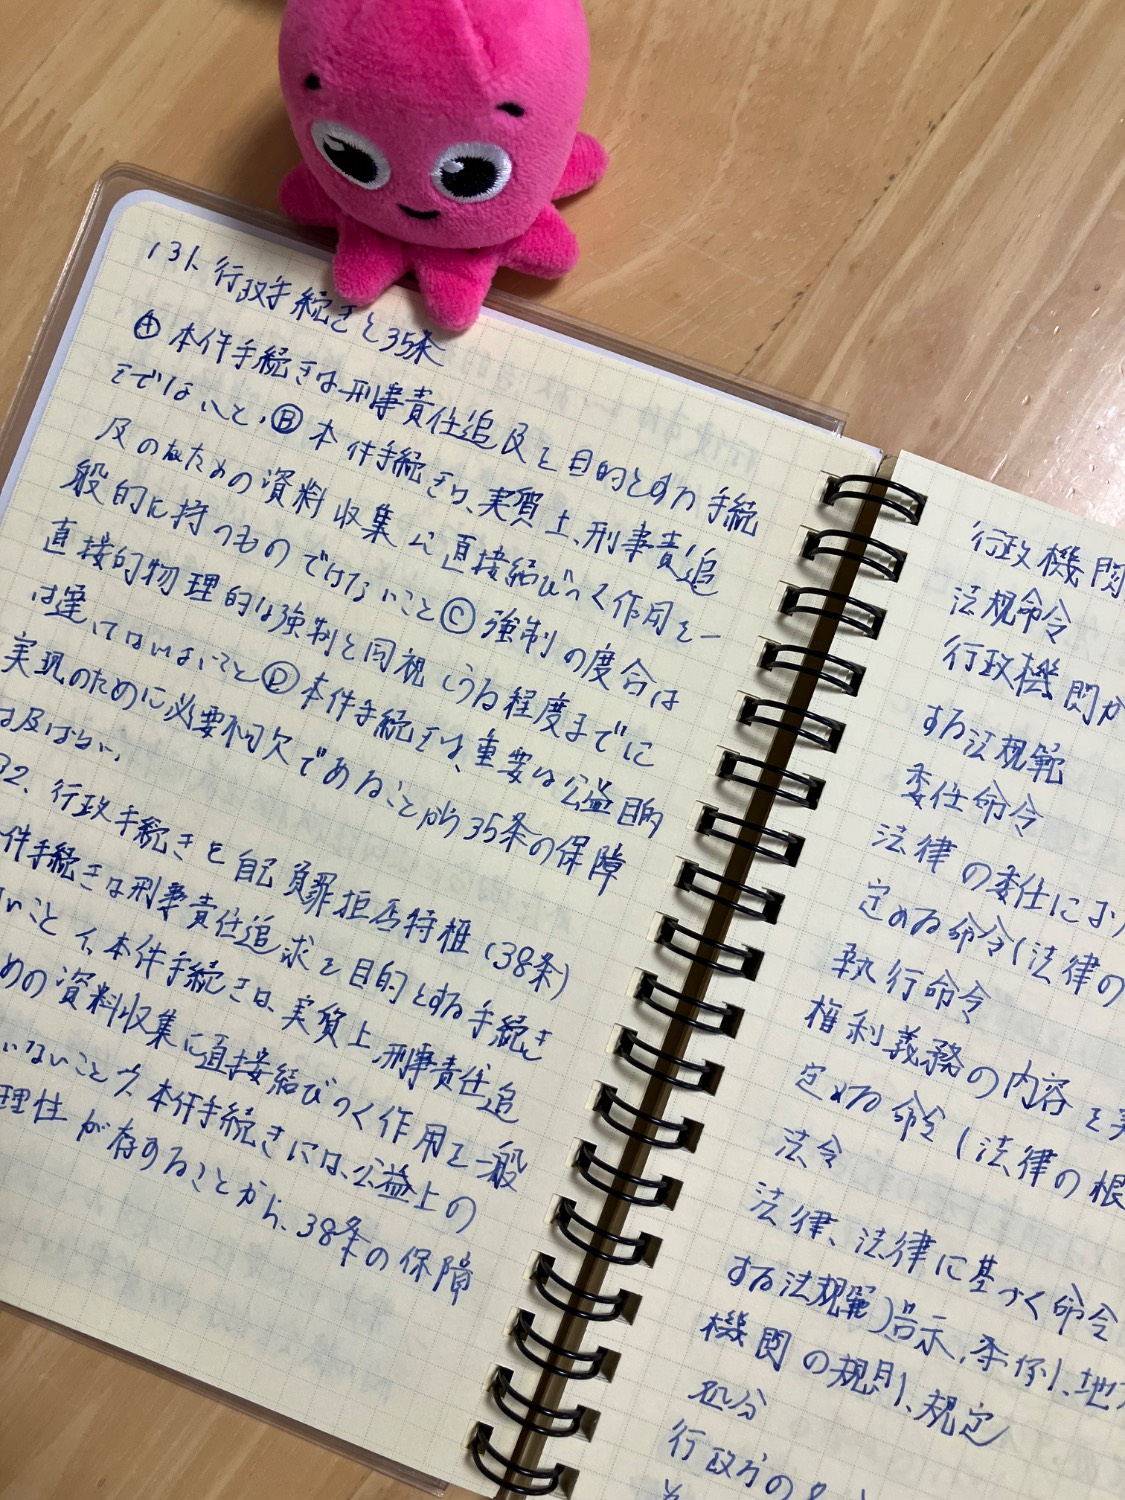 131、行政手続きと35条
Ⓐ本件手続きは刑事責任追及を目的とする手続
きではないと、Ⓑ本件手続きは、実質上、刑事責追
及のなための資料収集に直接結びつく作用を一
般的に持つものではないことⒸ強制の度合は
直接的物理的な強制と同視しうる程度までに
は達してはいないことⒹ本件手続きは、重要な公益目的
実現のために必要不可欠であることから35条の保障
は及ばない、
32、行政手続きと自己負罪拒否特権(38条)
件手続きは刑事責任追求を目的とする手続き
ないことイ、本件手続きは、実質上、刑事責任追
めの資料収集に直接結びつく作用を一般
いないことウ、本件手続きには、公益上の
理性が存することから、38条の保障
行政機関
法規命令
行政機関が
する法規範
委任命令
法律の委任により
定める命令(法律の
執行命令
権利義務の内容を実
定める命令(法律の根
法令
法律、法律に基づく命令
する法規範)告示、条例、地方
機関の規則、規定
処分
行政庁の